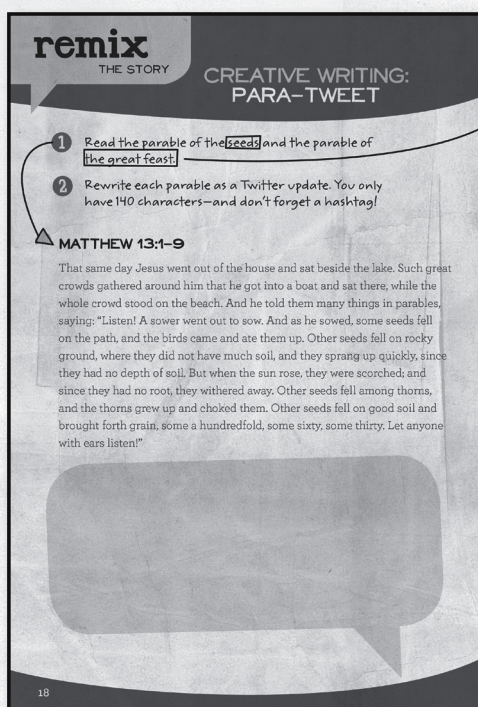 remix
THE STORY
CREATIVE WRITING:
PARA-TWEET
1 Read the parable of the seeds and the parable of
the great feast.
2 Rewrite each parable as a Twitter update. You only
have 140 characters—and don't forget a hashtag!
MATTHEW 13:1-9
That same day Jesus went out of the house and sat beside the lake. Such great
crowds gathered around him that he got into a boat and sat there, while the
whole crowd stood on the beach. And he told them many things in parables,
saying: "Listen! A sower went out to sow. And as he sowed, some seeds fell
on the path, and the birds came and ate them up. Other seeds fell on rocky
ground, where they did not have much soil, and they sprang up quickly, since
they had no depth of soil. But when the sun rose, they were scorched; and
since they had no root, they withered away. Other seeds fell among thorns,
and the thorns grew up and choked them. Other seeds fell on good soil and
brought forth grain, some a hundredfold, some sixty, some thirty. Let anyone
with ears listen!"
18